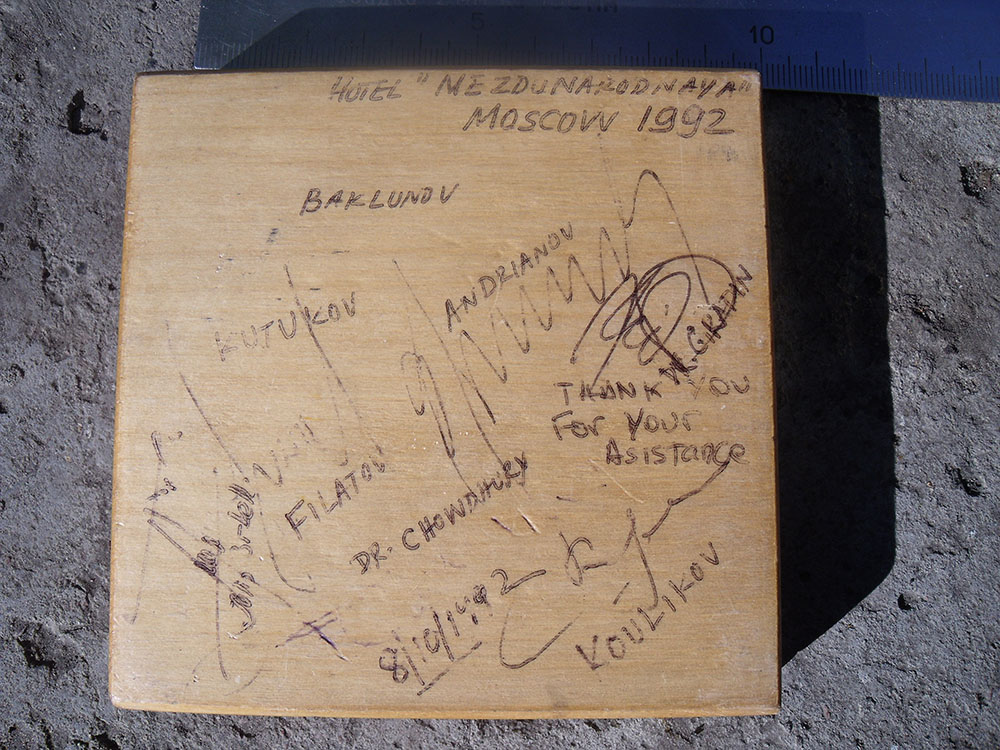 5
10
HOTEL "MEZDUNARODNAYA"
MOSCOW 1992
BAKLUNOV
ANDRIANOV
KUTUKOV
THANK YOU
FOR YOUR
ASISTANCE
FILATOV
DR. CHOWDHURY
8/10/1992
KOULIKOV